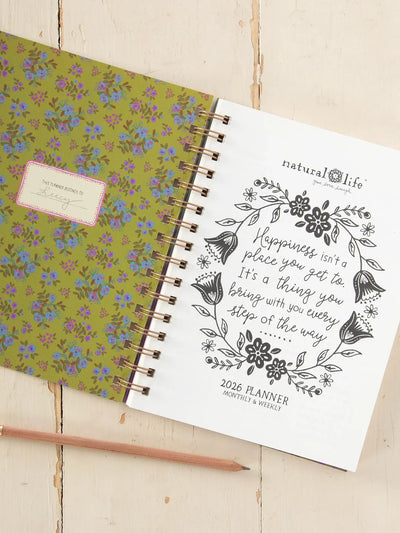 THIS PLANNER BELONGS TO:
natural life
give. love. laugh.
Happiness isn't a
place you get to.
It's a thing you
bring with you every
step of the way
.......
2026 PLANNER
MONTHLY & WEEKLY